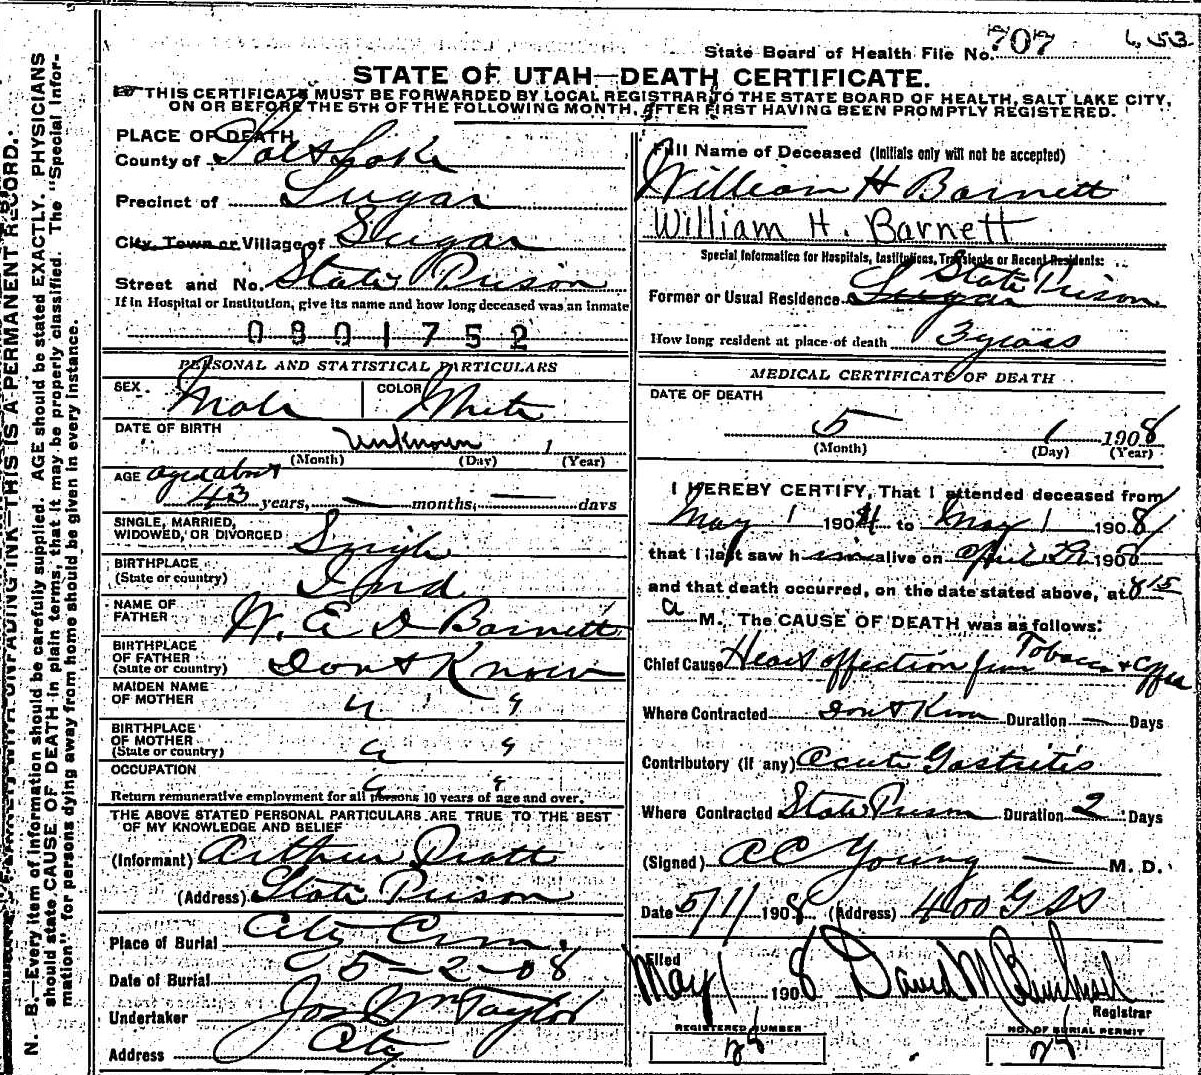 State Board of Health File No. 707 653
STATE OF UTAH—DEATH CERTIFICATE.
THIS CERTIFICATE MUST BE FORWARDED BY LOCAL REGISTRAR TO THE STATE BOARD OF HEALTH, SALT LAKE CITY,
ON OR BEFORE THE 5TH OF THE FOLLOWING MONTH, AFTER FIRST HAVING BEEN PROMPTLY REGISTERED.
N. B.—Every item of information should be carefully supplied. AGE should be stated EXACTLY. PHYSICIANS
should state CAUSE OF DEATH in plain terms, that it may be properly classified. The "Special Infor-
mation" for persons dying away from home should be given in every instance.
UNFADING INK—THIS IS A PERMANENT RECORD.
PLACE OF DEATH
County of Salt Lake
Precinct of Sugar
City, Town or Village of Sugar
Street and No. State Prison
If in Hospital or Institution, give its name and how long deceased was an inmate
0801752
PERSONAL AND STATISTICAL PARTICULARS
SEX. Male COLOR White
DATE OF BIRTH
Unknown 1
(Month) (Day) (Year)
AGE aged about
43 years, — months, — days
SINGLE, MARRIED,
WIDOWED, OR DIVORCED Single
BIRTHPLACE
(State or country) Ind
NAME OF
FATHER W. E D Barnett
BIRTHPLACE
OF FATHER
(State or country) Don't Know
MAIDEN NAME
OF MOTHER " "
BIRTHPLACE
OF MOTHER
(State or country) " "
OCCUPATION " "
Return remunerative employment for all persons 10 years of age and over.
THE ABOVE STATED PERSONAL PARTICULARS ARE TRUE TO THE BEST
OF MY KNOWLEDGE AND BELIEF
(Informant) Arthur Pratt
(Address) State Prison
Place of Burial City Cem.
Date of Burial 5-2-08
Undertaker Jos Wm Taylor
Address City
Full Name of Deceased (Initials only will not be accepted)
William H Barnett
William H. Barnett
Special Information for Hospitals, Institutions, Transients or Recent Residents:
State Prison
Former or Usual Residence Sugar
How long resident at place of death 3 years
MEDICAL CERTIFICATE OF DEATH
DATE OF DEATH
5 1 1908
(Month) (Day) (Year)
I HEREBY CERTIFY, That I attended deceased from
May 1 1904 to May 1 1908
that I last saw him alive on April 29 1908
and that death occurred, on the date stated above, at 8 15
a M. The CAUSE OF DEATH was as follows:
Chief Cause Heart affection from Tobacco & Coffee
Where Contracted Don't Know Duration — Days
Contributory (if any) Acute Gastritis
Where Contracted State Prison Duration 2 Days
(Signed) A C Young — M. D.
Date 5/1/ 1908 (Address) 400 G SS
Filed
May 1 1908 David M
Registrar
REGISTERED NUMBER NO. OF BURIAL PERMIT